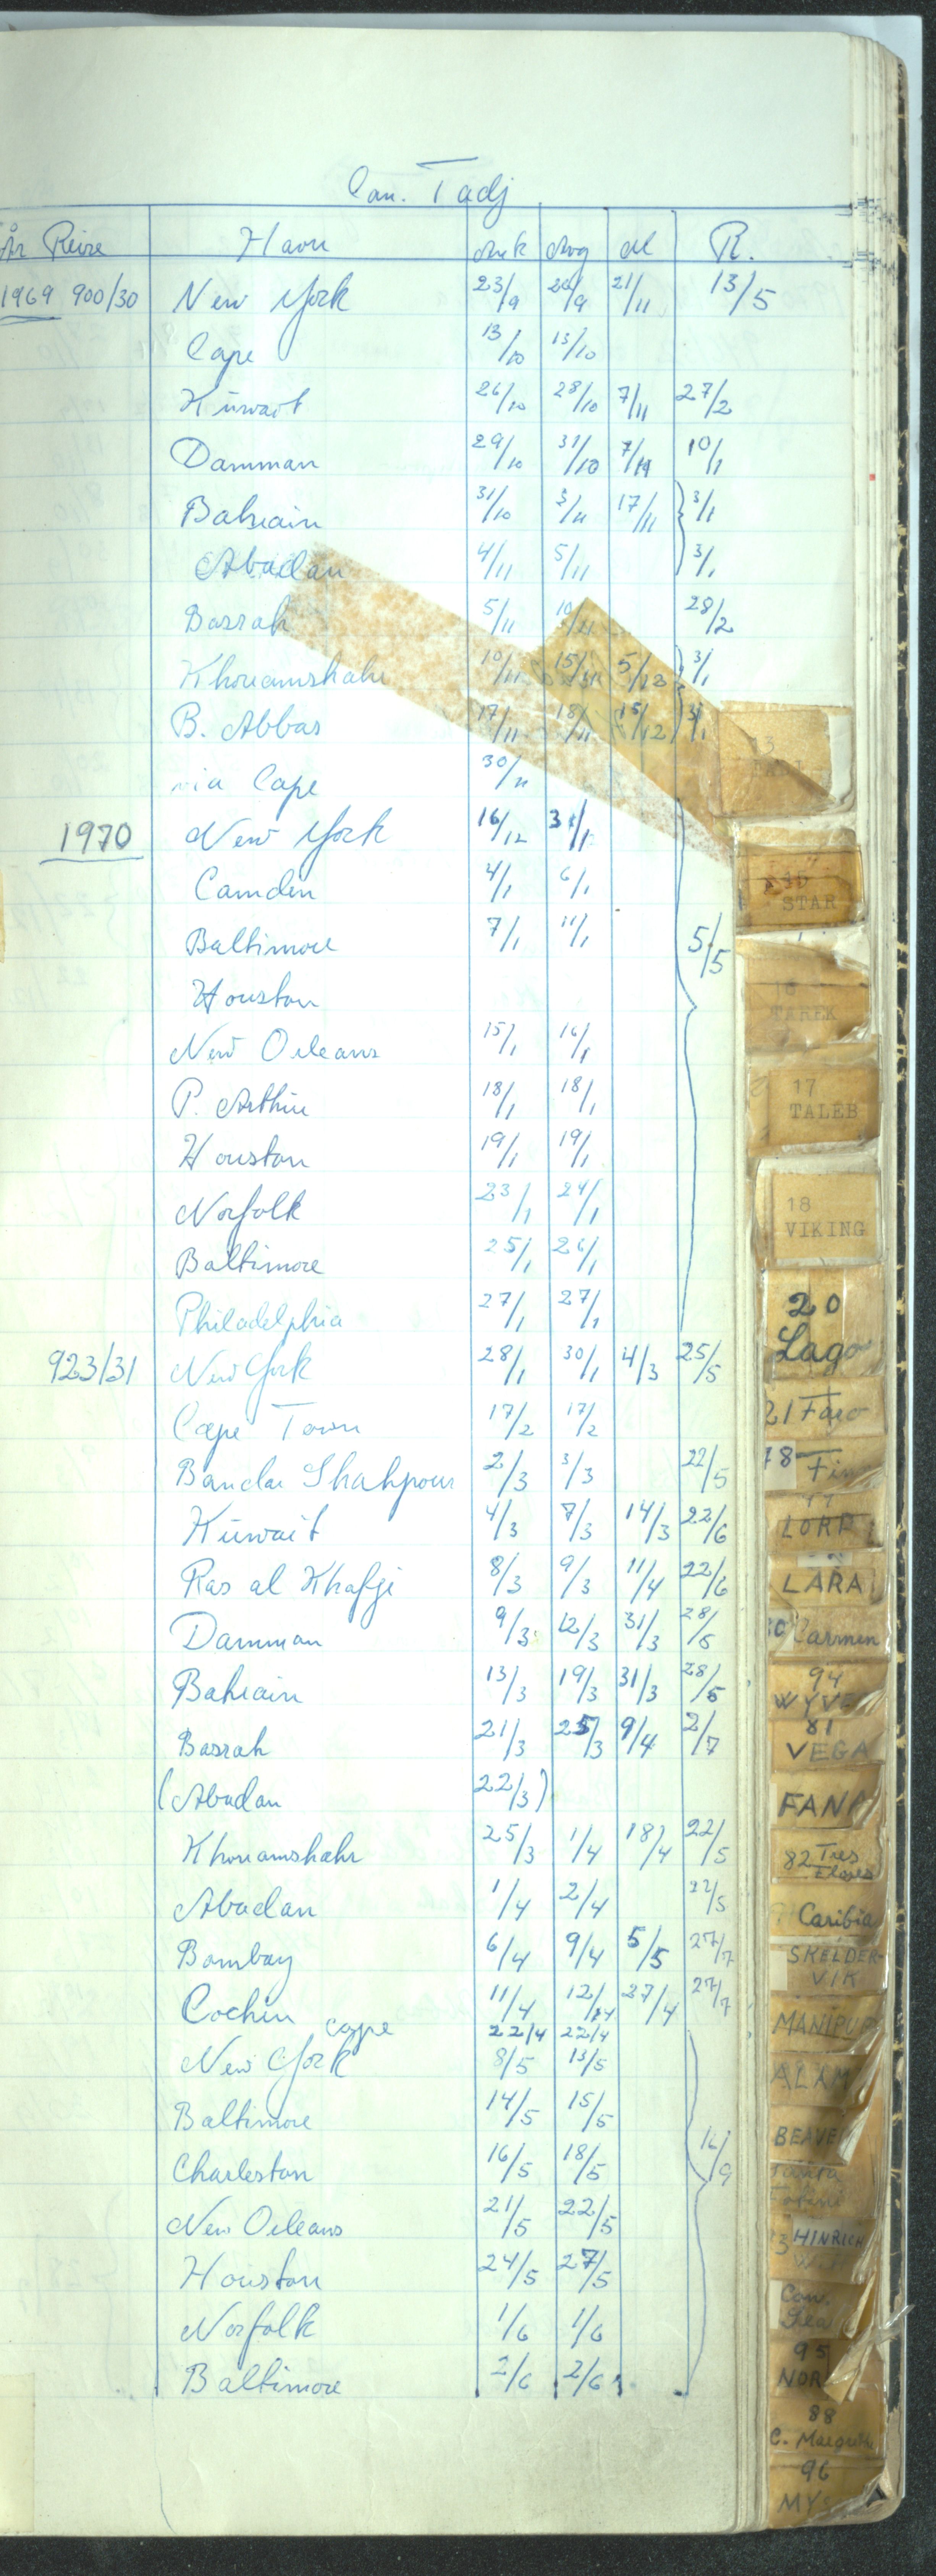 Can. Tadj
År Reise Havn Ank Avg M R.
1969 900/30 New York 23/9 26/9 21/11 13/5
Cape 13/10 13/10
Kuwait 26/10 28/10 7/11 27/2
Damman 29/10 31/10 7/11 10/1
Bahrain 31/10 3/11 17/11 3/1
Abadan 4/11 5/11 3/1
Basrah 5/11 10/11 28/2
Khoramshahr 10/11 15/11 5/12 3/1
B. Abbas 17/11 18/11 15/12 3/1
via Cape 30/11
1970 New York 16/12 3/1
Camden 4/1 6/1
Baltimore 7/1 11/1 5/5
Houston
New Orleans 15/1 16/1
P. Arthur 18/1 18/1
Houston 19/1 19/1
Norfolk 23/1 24/1
Baltimore 25/1 26/1
Philadelphia 27/1 27/1
923/31 New York 28/1 30/1 4/3 25/5
Cape Town 17/2 17/2
Bandar Shahpour 2/3 3/3 22/5
Kuwait 4/3 7/3 14/3 22/6
Ras al Khafgi 8/3 9/3 11/4 22/6
Damman 9/3 12/3 31/3 28/5
Bahrain 13/3 19/3 31/3 28/5
Basrah 21/3 25/3 9/4 2/7
(Abadan 22/3)
Khoramshahr 25/3 1/4 18/4 22/5
Abadan 1/4 2/4 22/5
Bombay 6/4 9/4 5/5 27/7
Cochin 11/4 12/4 27/4 27/7
cape 22/4 22/4
New York 8/5 13/5
Baltimore 14/5 15/5
Charleston 16/5 18/5 16/9
New Orleans 21/5 22/5
Houston 24/5 27/5
Norfolk 1/6 1/6
Baltimore 2/6 2/6
13
STAR
16
TAREK
17
TALEB
18
VIKING
20
Lago
21 Faro
78 Fin
LORD
LARA
Carmen
94
WYVE
81
VEGA
FANA
82 Tres
Flores
Caribia
SKELDER-
VIK
MANIPUR
ALAM
BEAVE
HINRICH
Con.
Sea
95
NOR
88
C. Margrethe
96
MYS